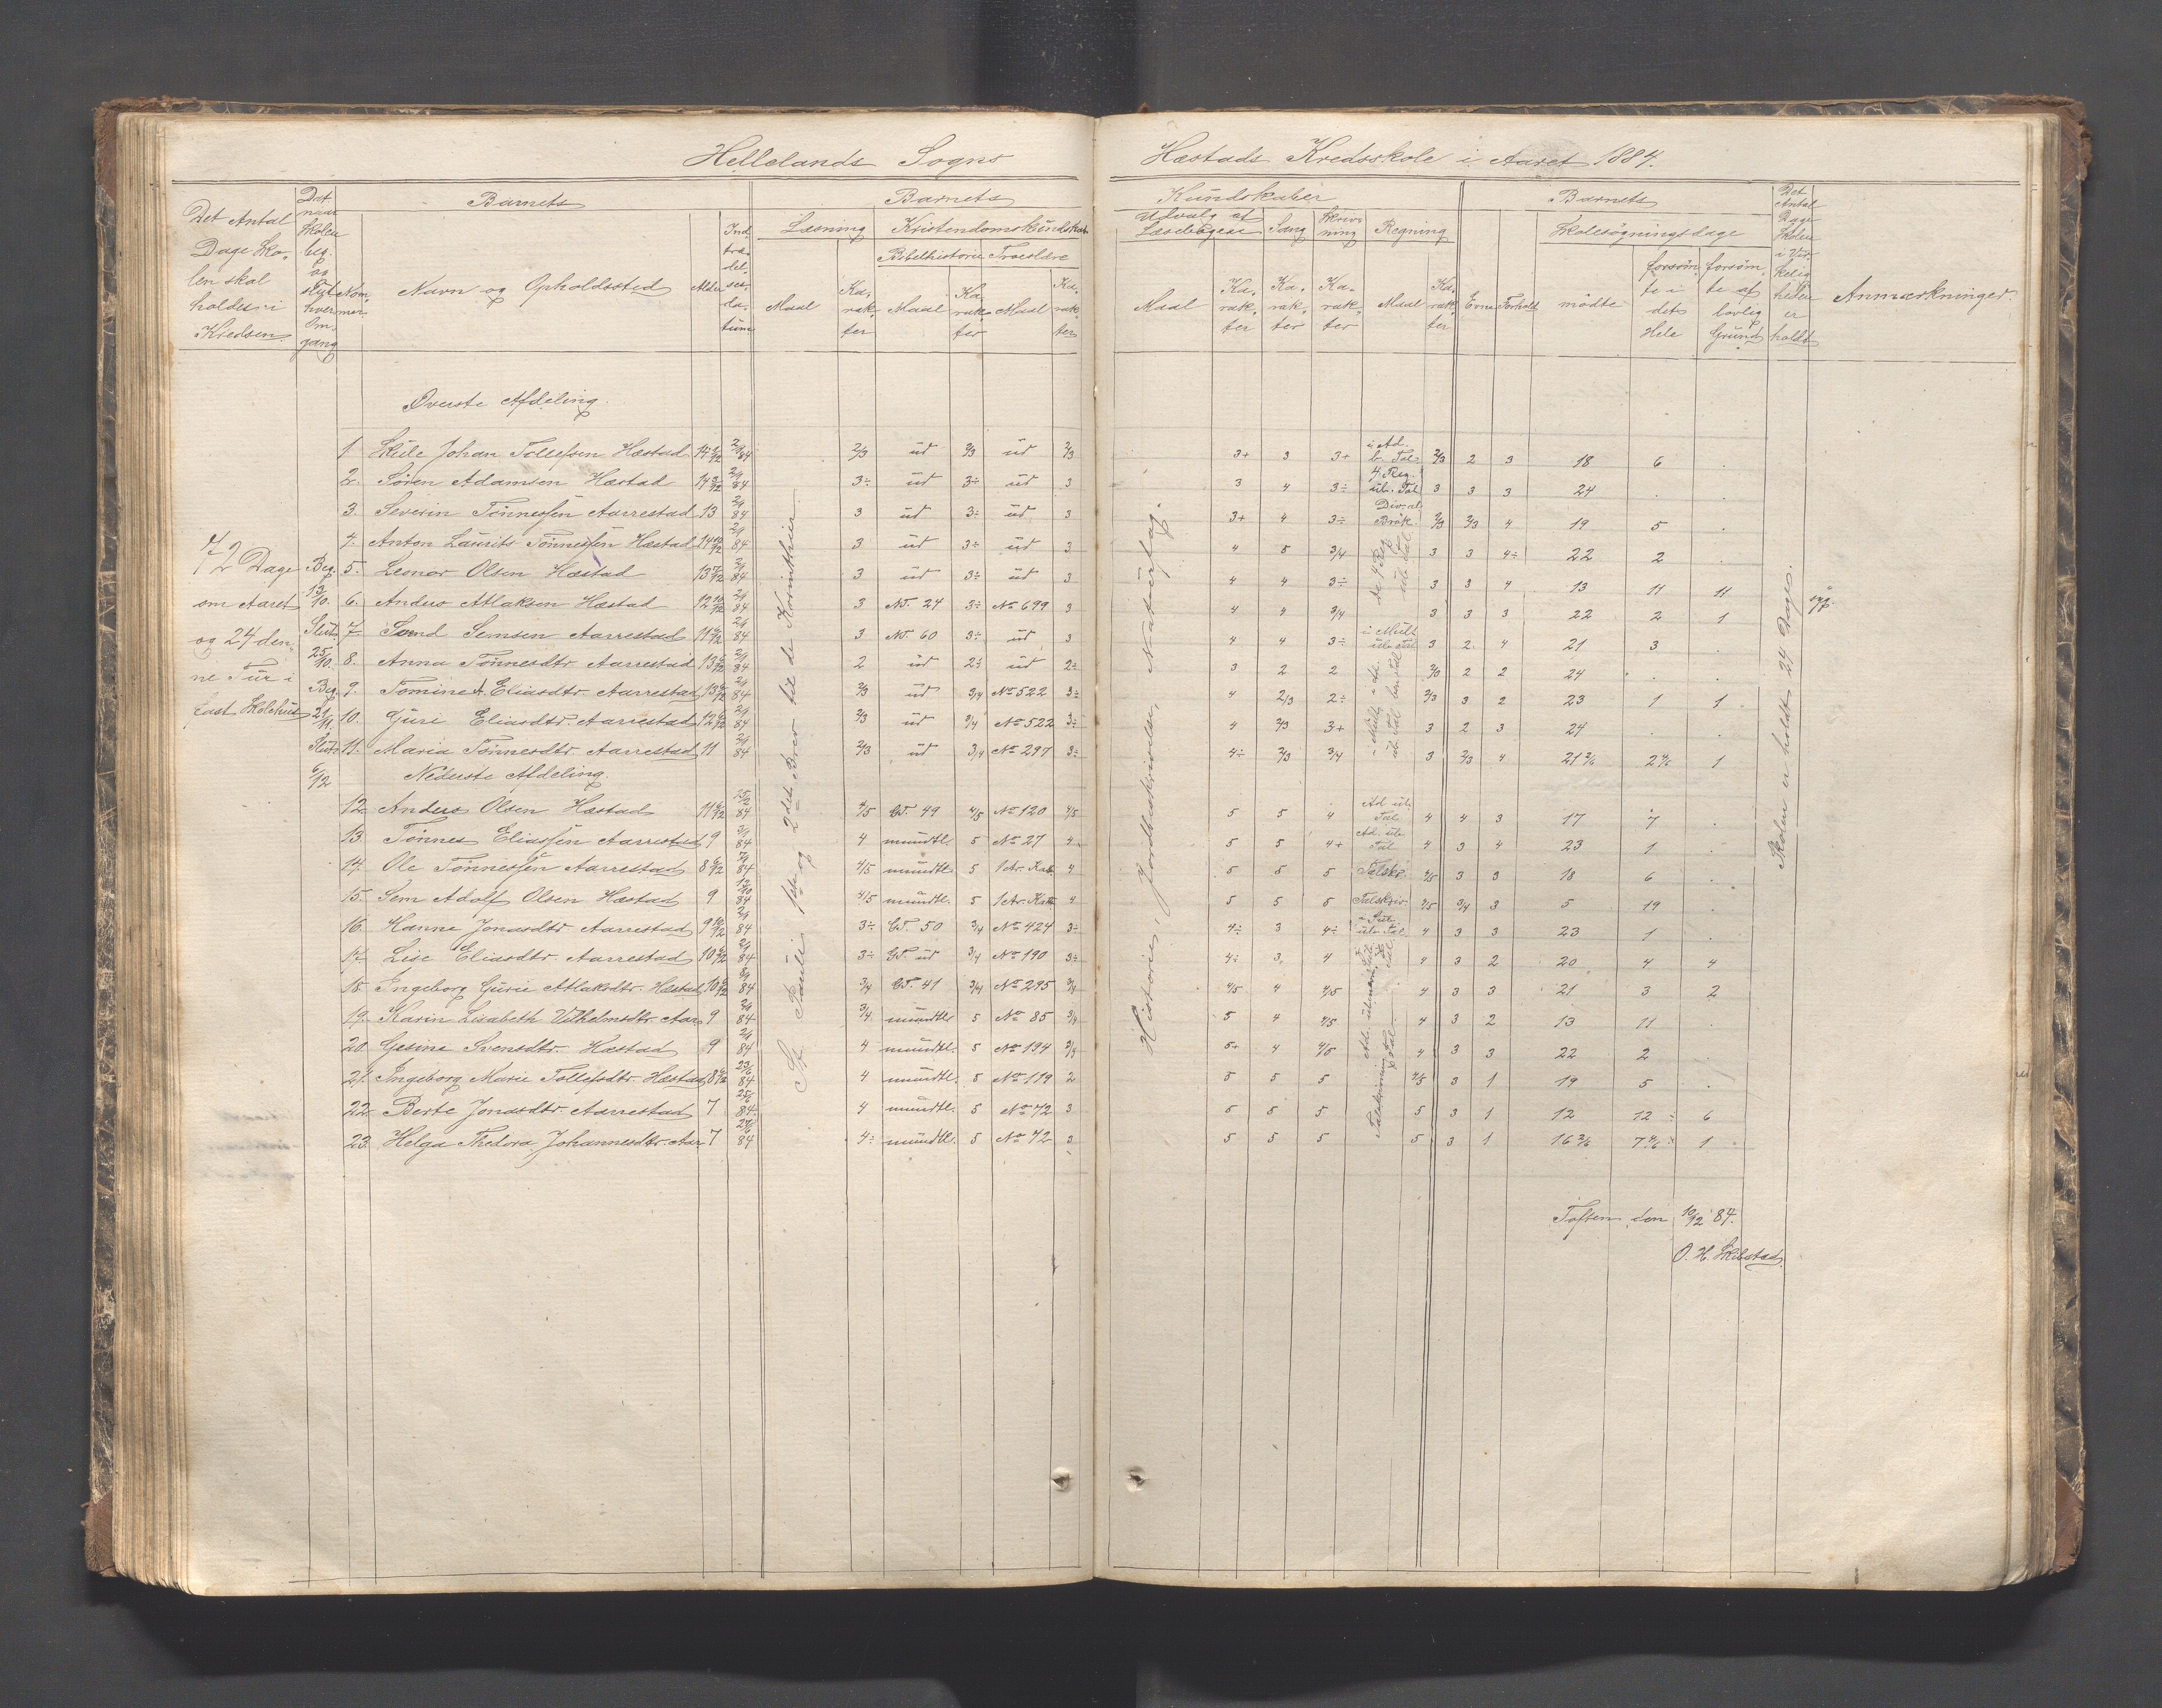 Hellelands Sogns Hæstads Kredsskole i Aaret 1884.
Det Antal Dage Skolen skal holdes i Kredsen
Det naar Skolen beg. og slut. hver Omgang
Barnets
Nommer
Navn og Opholdssted
Alder
Indtrædelsesdatum
Barnets Kundskaber
Læsning
Maal
Karakter
Kristendomskundskab
Bibelhistorie
Maal
Karakter
Troeslære
Maal
Karakter
Udvalg af Læsebogen
Maal
Karakter
Sang
Karakter
Skrivning
Karakter
Regning
Maal
Karakter
Barnets
Evne
Forhold
Skolesøgningsdage
mødte
forsømte i det Hele
forsømte af lovlig Grund
Det Antal Dage Skolen i Virkeligheden er holdt
Anmærkninger.
72 Dage om Aaret og 24 denne Tur i fast Skolehus
Beg. 13/10. Slut. 25/10. Beg. 21/11. Slut. 6/12
St Pauli 1ste og 2det Brev til de Korinthier
Historie, Jordbeskrivelse, Naturfag.
Skolen er holdt 24 Dage.
Øverste Afdeling.
1 Skule Johan Tollefsen Hæstad 14 2/1 84 2/3 ud 2/3 ud 2/3 3+ 3 3+ 2/3 2 3 18 6 .
2. Søren Adamsen Hæstad 2/1 84 3÷ ud 3÷ ud 3 3 4 3÷ 3 3 3 24 . .
3. Severin Tønnessen Aarrestad 13 2/1 84 3 ud 3÷ ud 3 3+ 4 3÷ 2/3 2/3 4 19 5 .
4. Anton Laurits Tønnessen Hæstad 2/1 84 3 ud 3÷ ud 3 4 5 3/4 3 3 4÷ 22 2 .
5. Leonor Olsen Hæstad 2/1 84 3 ud 3÷ ud 3 4 4 3÷ 3 3 4 13 11 11
6. Anders Atlaksen Hæstad 2/1 84 3 NT. 24 3÷ No 699 3 4 4 3/4 3 3 3 22 2 1
7. Semsen Aarrestad 2/1 84 3 NT. 60 3÷ ud 3 4 4 3÷ 3 2 4 21 3 .
8. Anna Tønnesdtr. Aarrestad 2/1 84 2 ud 2÷ ud 2÷ 3 2 2 2/3 2 2 24 . .
9. Tomine A. Eliasdtr. Aarrestad 2/1 84 2/3 ud 3/4 No 522 3÷ 4 2/3 2÷ 2/3 3 2 23 1 1
10. Guri Eliasdtr. Aarrestad 2/1 84 2/3 ud 3/4 No 522 3÷ 4 2/3 3+ 3 2 3 24 . .
11. Maria Tønnesdtr. Aarrestad 11 2/1 84 2/3 ud 3/4 No 297 3÷ 4÷ 2/3 3/4 3 2/3 4 21 2/6 2 4/6 1
Nederste Afdeling.
12. Anders Olsen Hæstad 84 4/5 GT. 49 4/5 No 120 4/5 5 5 4 4 4 3 17 7 .
13. Tønnes Eliassen Aarrestad 9 84 4 mundtl. 5 No 27 4 5 5 4+ 4 3 4 23 1 .
14. Ole Tønnessen Aarrestad 84 4/5 mundtl. 5 1 Ar. Kat. 4 5 5 5 Talskr. 4/5 3 3 18 6 .
15. Sem Adolf Olsen Hæstad 9 13/10 84 4/5 mundtl. 5 1 Ar. Kat. 4 5 5 5 Talskriv. 4/5 3/4 3 5 19 .
16. Hanne Jonasdtr. Aarrestad 2/1 84 3÷ GT. 50 3/4 No 424 3÷ 4÷ 3 4÷ 4 3 3 23 1 .
17. Lise Eliasdtr. Aarrestad 2/1 84 3÷ GT. ud 3/4 No 190 3÷ 4÷ 3 4 4 3 2 20 4 4
18. Ingeborg Gurie Atlaksdtr. Hæstad 84 3/4 GT. 41 3/4 No 295 3/4 4/5 4 4/5 4 3 3 21 3 2
19. Karin Lisabeth Vilhelmsdtr. Aar. 9 2/1 84 3/4 mundtl. 5 No 85 3/4 5 4 4/5 4 3 2 13 11 .
20. Gesine Svensdtr. Hæstad 9 2/1 84 4 mundtl. 5 No 194 3/4 5+ 4 4/5 4 3 3 22 2 .
21. Ingeborg Marie Tollefsdtr. Hæstad 23/6 84 4 mundtl. 5 No 119 2 5 5 5 4/5 3 1 19 5 .
22. Berte Jonasdtr. Aarrestad 7 25/6 84 4 mundtl. 5 No 72 3 5 5 5 5 3 1 12 12 6
23. Helga Thedora Johannesdtr. Aar. 7 84 4÷ mundtl. 5 No 72 3 5 5 5 5 3 1 16 2/6 7 4/6 1
Toften den 10/12 84.
O. H. Skibstad.